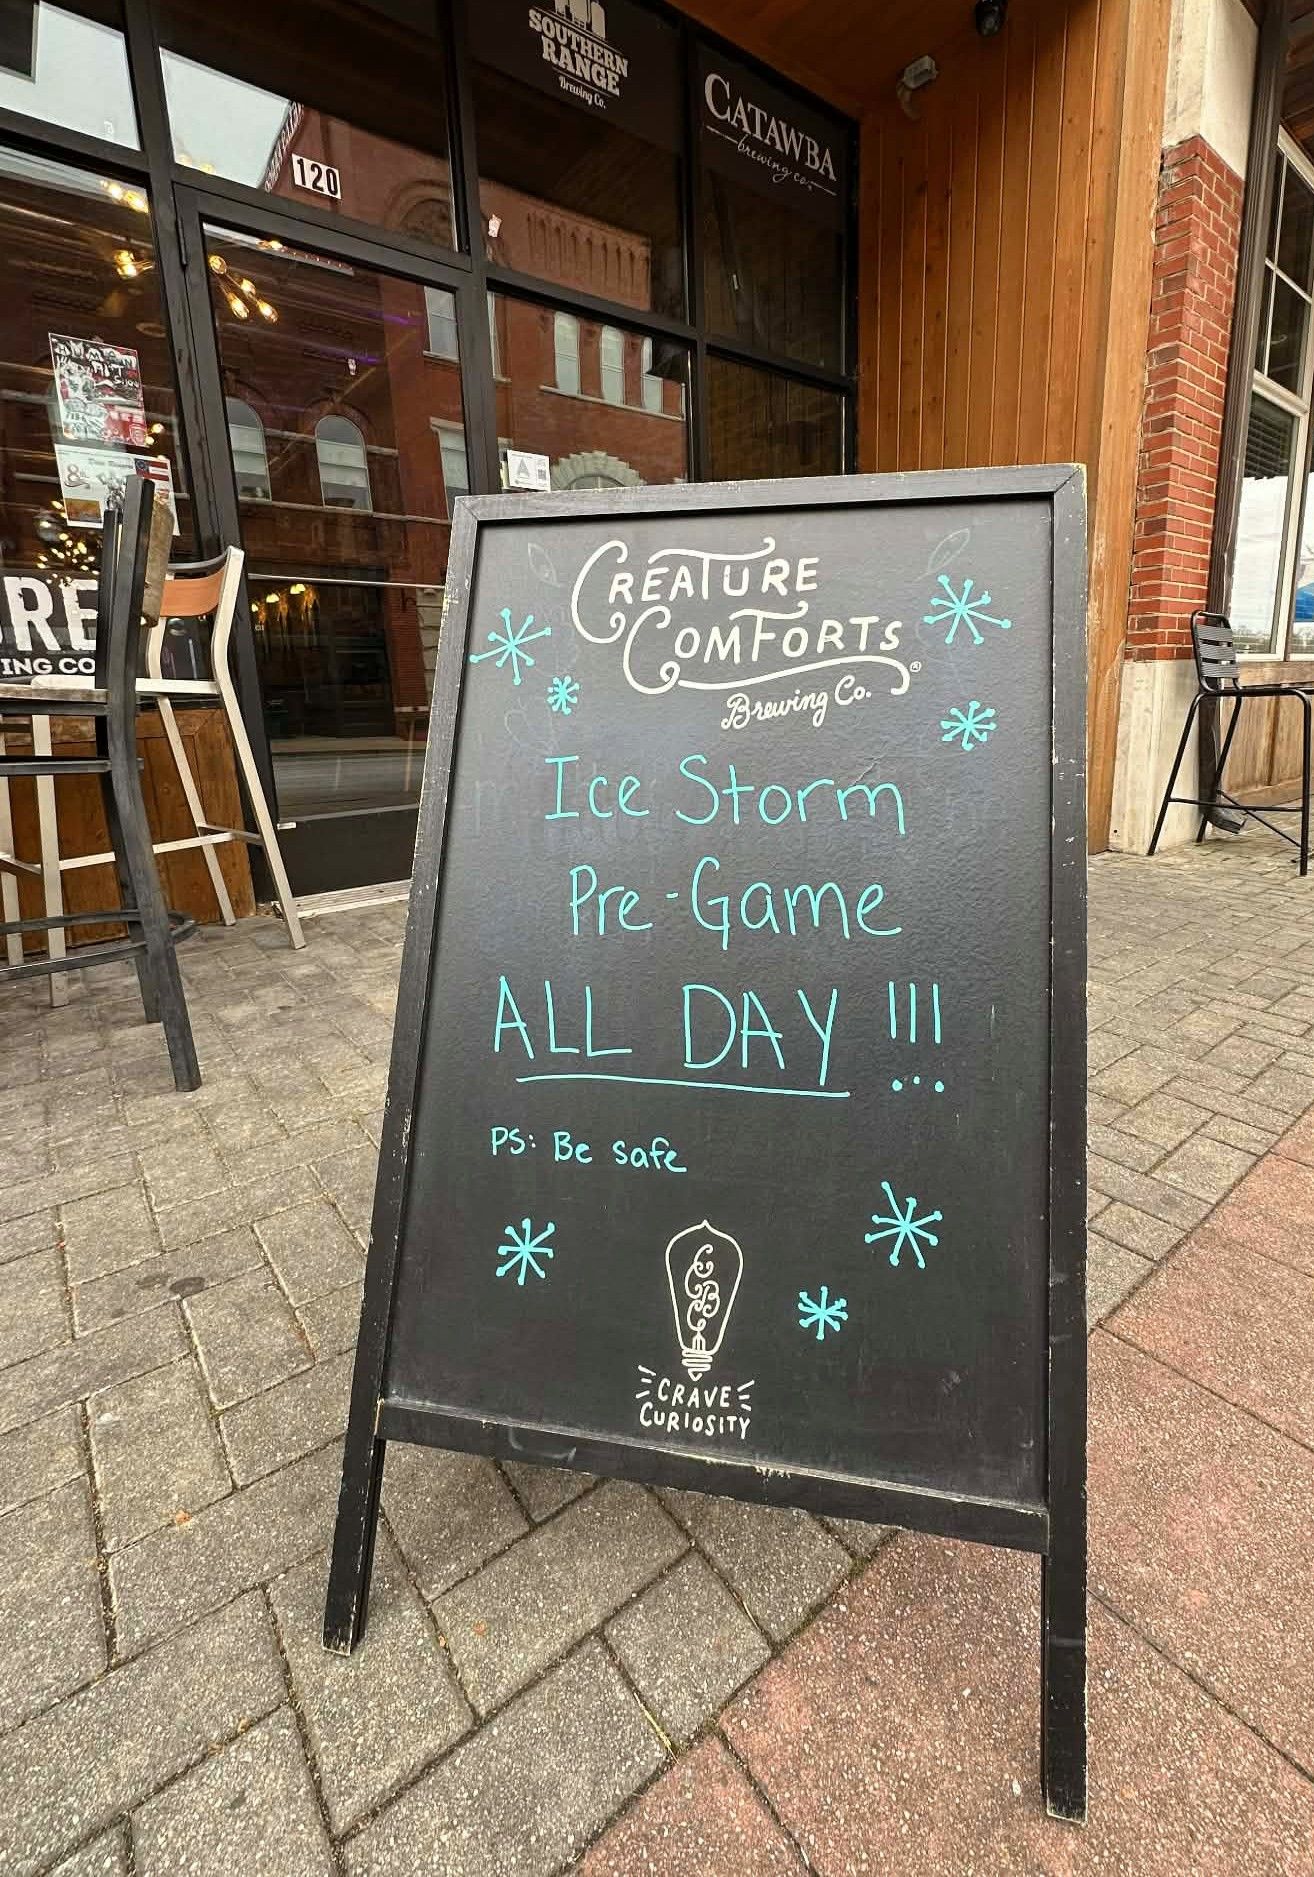 SOUTHERN
RANGE
Brewing Co.
CATAWBA
brewing co.
120
CREATURE
COMFORTS®
Brewing Co.
Ice Storm
Pre-Game
ALL DAY !!!
PS: Be safe
CBC
CRAVE
CURIOSITY
RE
ING CO
A